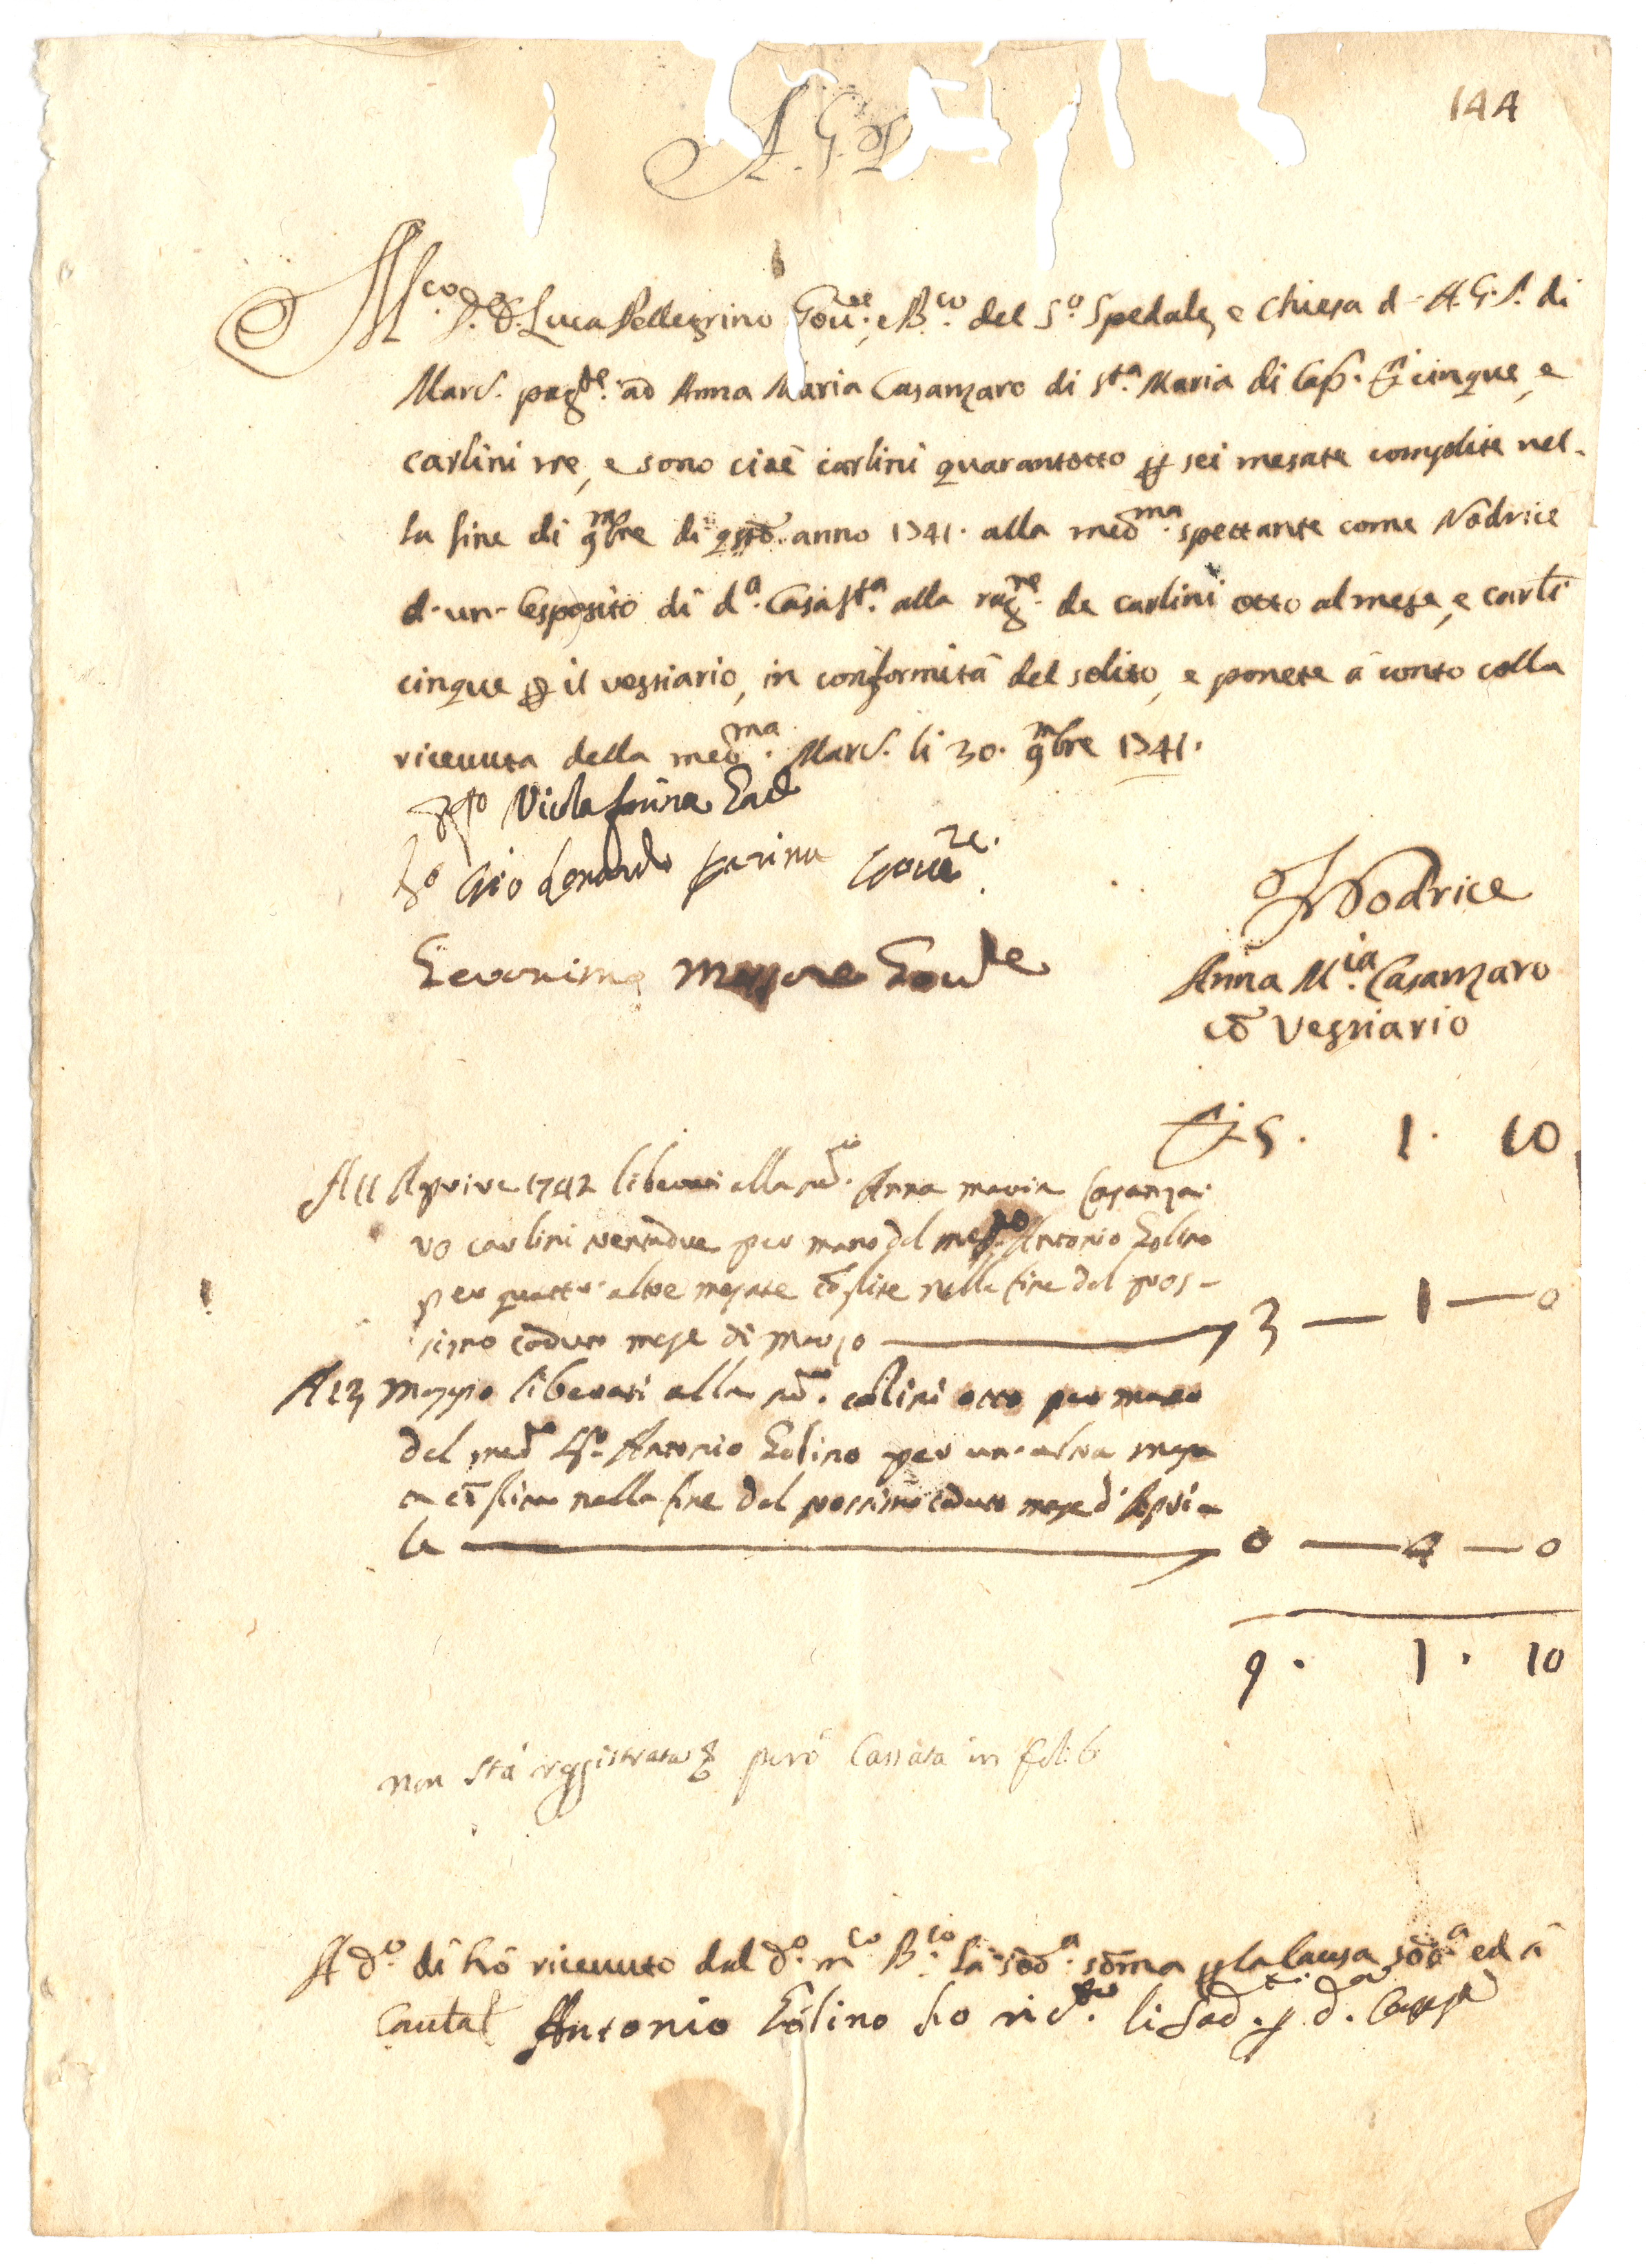 144
A. G. P.
M.co S.r D. Luca Pellegrino Gov.re e B.co del S.o Spedale, e Chiesa d- A. G. P. di
Marc. pag.te ad Anna Maria Casanzaro di S.ta Maria di Cap. D.ti cinque, e
carlini tre, e sono cioè carlini quarantotto p sei mesate complite nel-
la fine di 9mbre di qsto anno 1741. alla med.ma spettante come Nodrice
d-un- Esposito di d.a Casa S.ta alla rag.ne de carlini otto al mese, e carli
cinque p il vestiario, in conformità del solito, e ponete à conto colla
ricevuta della med.ma Marc. li 30. 9mbre 1741.
Nicola farina
Gio Lonardo farina Gove.re
Geronimo Gov.re
Nodrice
Anna M.ia Casanzaro
cō Vestiario
D.ti 5. 1. 10
A 11 Aprire 1742 liberati alla sud.a Anna maria Casanza-
ro carlini trentadue per mano del Antonio Golino
per quattro altre mesate cōplite nella fine del pros-
simo caduto mese di Marzo 3 — 1 — 0
A 13 Maggio liberati alla sud.a carlini otto per mano
del med.o Antonio Golino per un-altra mesa
ta cōplita nella fine del prossimo caduto mese d'Apri-
le 0 — 4 — 0
9. 1. 10
non stà reggistrata però Cassata in fol: 6
A d.o dì hò ricevuto dal d.o m.co B.co la sud.a sōma p la causa sud.a ed à
Cautal Antonio Golino ho ric.to li sud.ti p d.a Causa